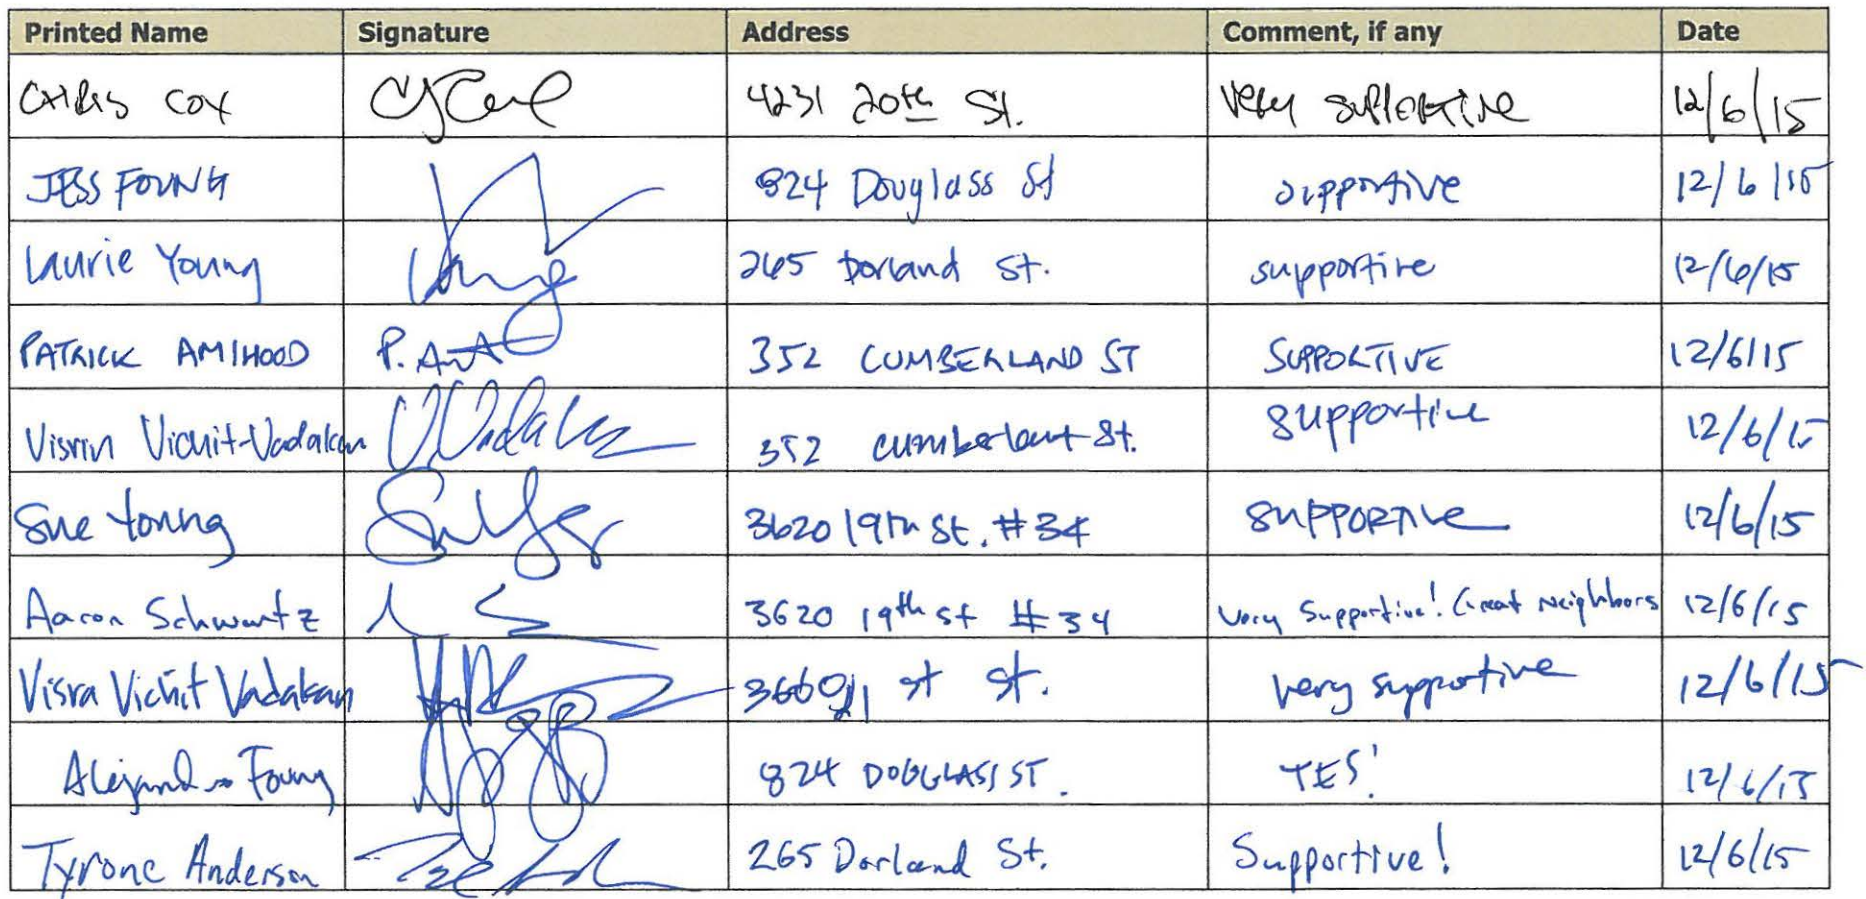 Printed Name Signature Address Comment, if any Date
CHRIS COX 4231 20th St. Very supportive 12/6/15
JESS FOUNG 824 Douglass St supportive 12/6/15
Laurie Young 265 Dorland St. supportive 12/6/15
PATRICK AMIHOOD P. 352 CUMBERLAND ST SUPPORTIVE 12/6/15
Visrin Vichit-Vadakan V. Vadakan 352 Cumberland St. supportive 12/6/15
Sue Young 3620 19th St. #34 supportive 12/6/15
Aaron Schwartz 3620 19th St #34 Very Supportive! Great Neighbors 12/6/15
Visra Vichit Vadakan 21st St. very supportive 12/6/15
Alejandro Foung 824 DOUGLASS ST. YES! 12/6/15
Tyrone Anderson 265 Dorland St. Supportive! 12/6/15